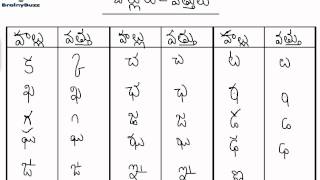 BrainyBuzz
హల్లులు - వత్తులు
హల్లు వత్తు హల్లు వత్తు హల్లు వత్తు
క ్క చ ్చ ట ్ట
ఖ ్ఖ ఛ ్ఛ ఠ ్ఠ
గ ్గ జ ్జ డ ్డ
ఘ ్ఘ ఝ ్ఝ ఢ ్ఢ
ఙ ్ఙ ఞ ్ఞ